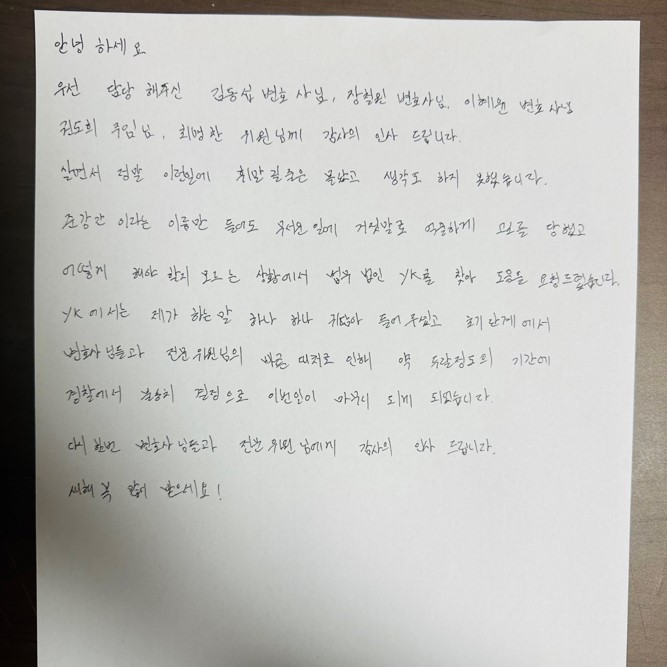 안녕 하세요
우선 담당 해주신 김동섭 변호사님, 장철원 변호사님, 이혜원 변호사님
권도희 주임님, 최명찬 위원님께 감사의 인사 드립니다.
살면서 정말 이런일에 휘말릴줄은 몰랐고 생각도 하지 못했습니다.
준강간 이라는 이름만 들어도 무서운 일에 거짓말로 억울하게 고소를 당했고
어떻게 해야 할지 모르는 상황에서 법무 법인 YK를 찾아 도움을 요청드렸습니다.
YK에서는 제가 하는 말 하나 하나 귀담아 들어 주셨고 초기 단계에서
변호사님들과 전문 위원님의 빠른 대처로 인해 약 두달정도의 기간에
경찰에서 불송치 결정으로 이번일이 마무리 되게 되었습니다.
다시 한번 변호사님들과 전문 위원님에게 감사의 인사 드립니다.
새해 복 많이 받으세요!